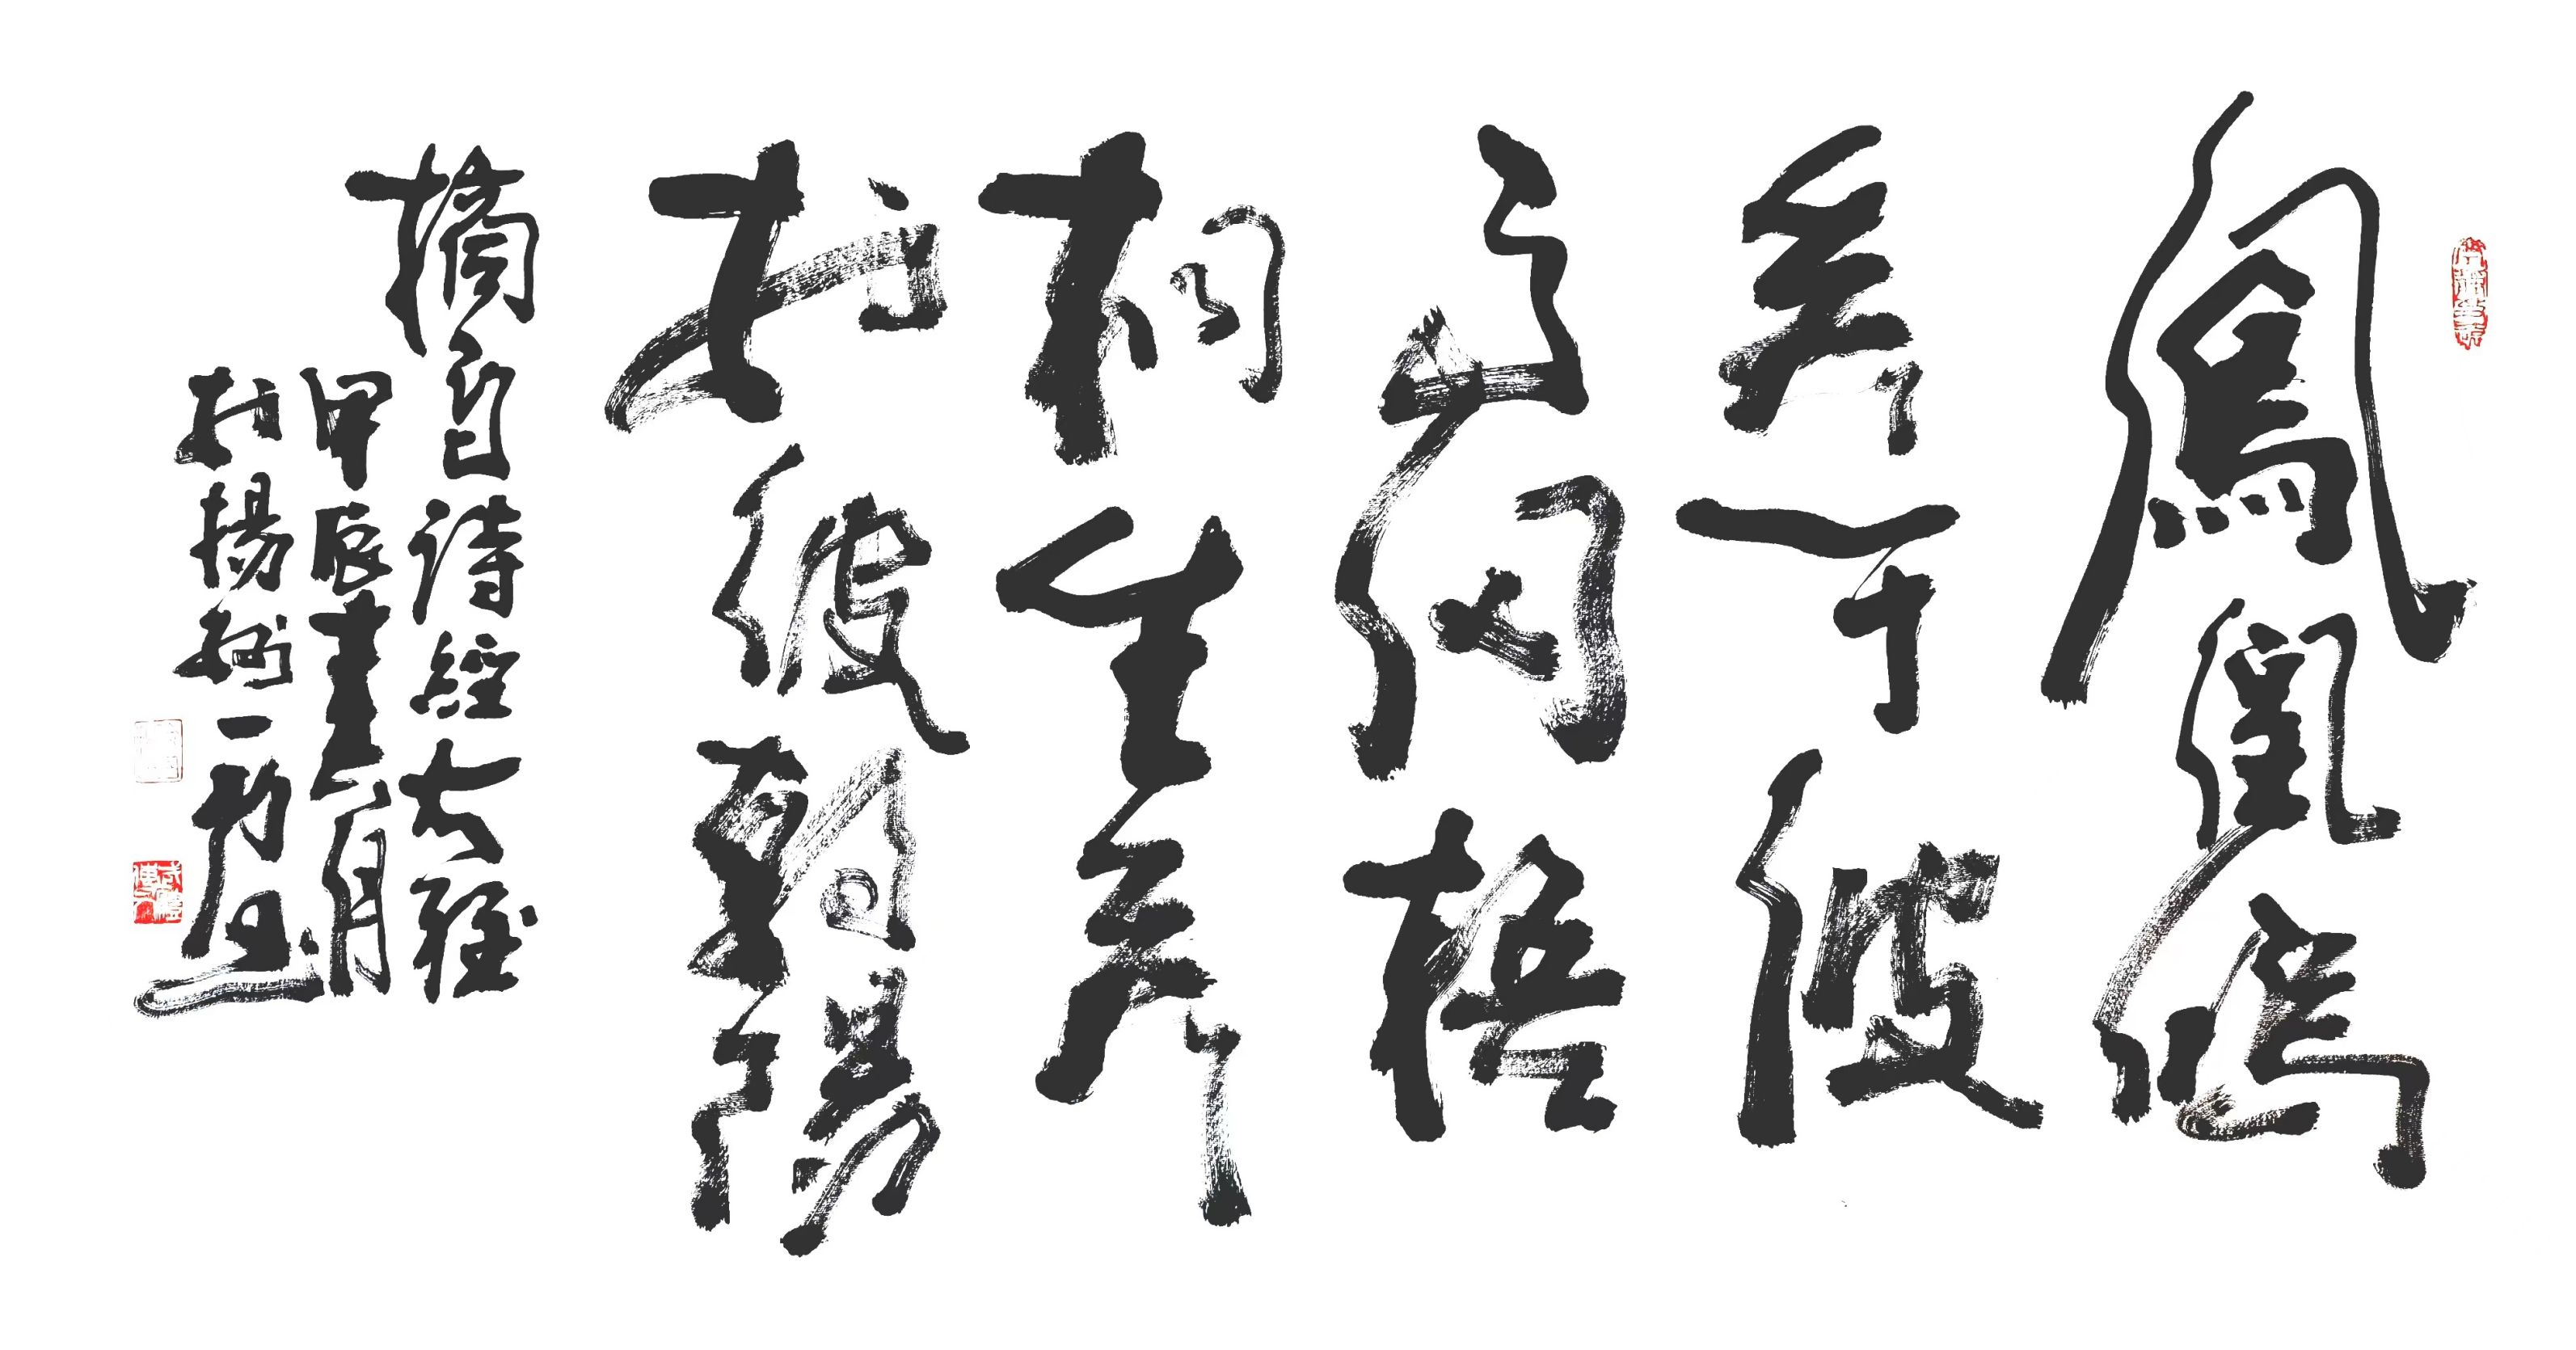 鳳凰鳴
矣于彼
高岡梧
桐生矣
於彼朝陽
摘自詩經大雅
甲辰月
於揚州一